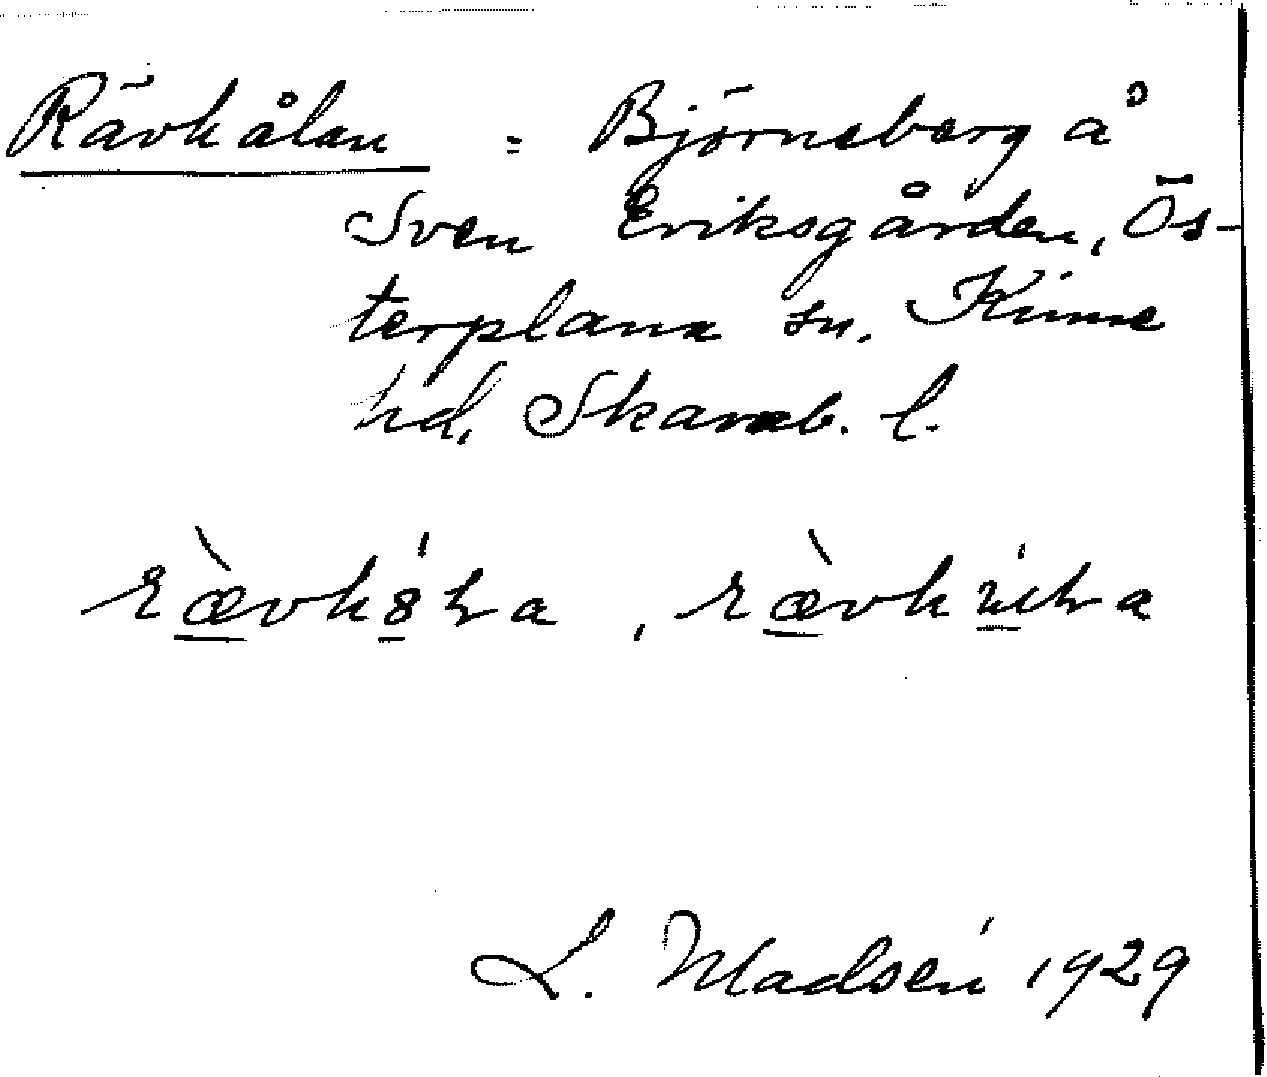 Rävhålan = Björnsberg å
Sven Eriksgården, Ös-
terplana sn. Kinne
hd, Skarab. l.
L. Madsén 1929